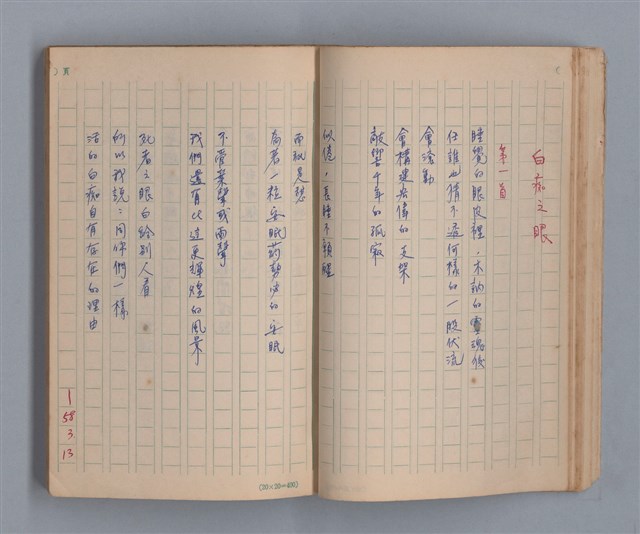 白痴之眼
第一首
睡覺的眼皮裡，木訥的靈魂後
任誰也猜不透何樣的一股伏流
會湧動
會構建宏偉的支架
敲響千年的孤寂
似倦，長睡不願醒
而祇冥想
荷著一粒安眠药勢必的安眠
不管葉聲或雨聲
我們還有比這更輝煌的風景
死者之眼白給別人看
所以我說：同你們一樣
活的白痴自有存在的理由
1
58
3.
13
頁
(20×20=400)